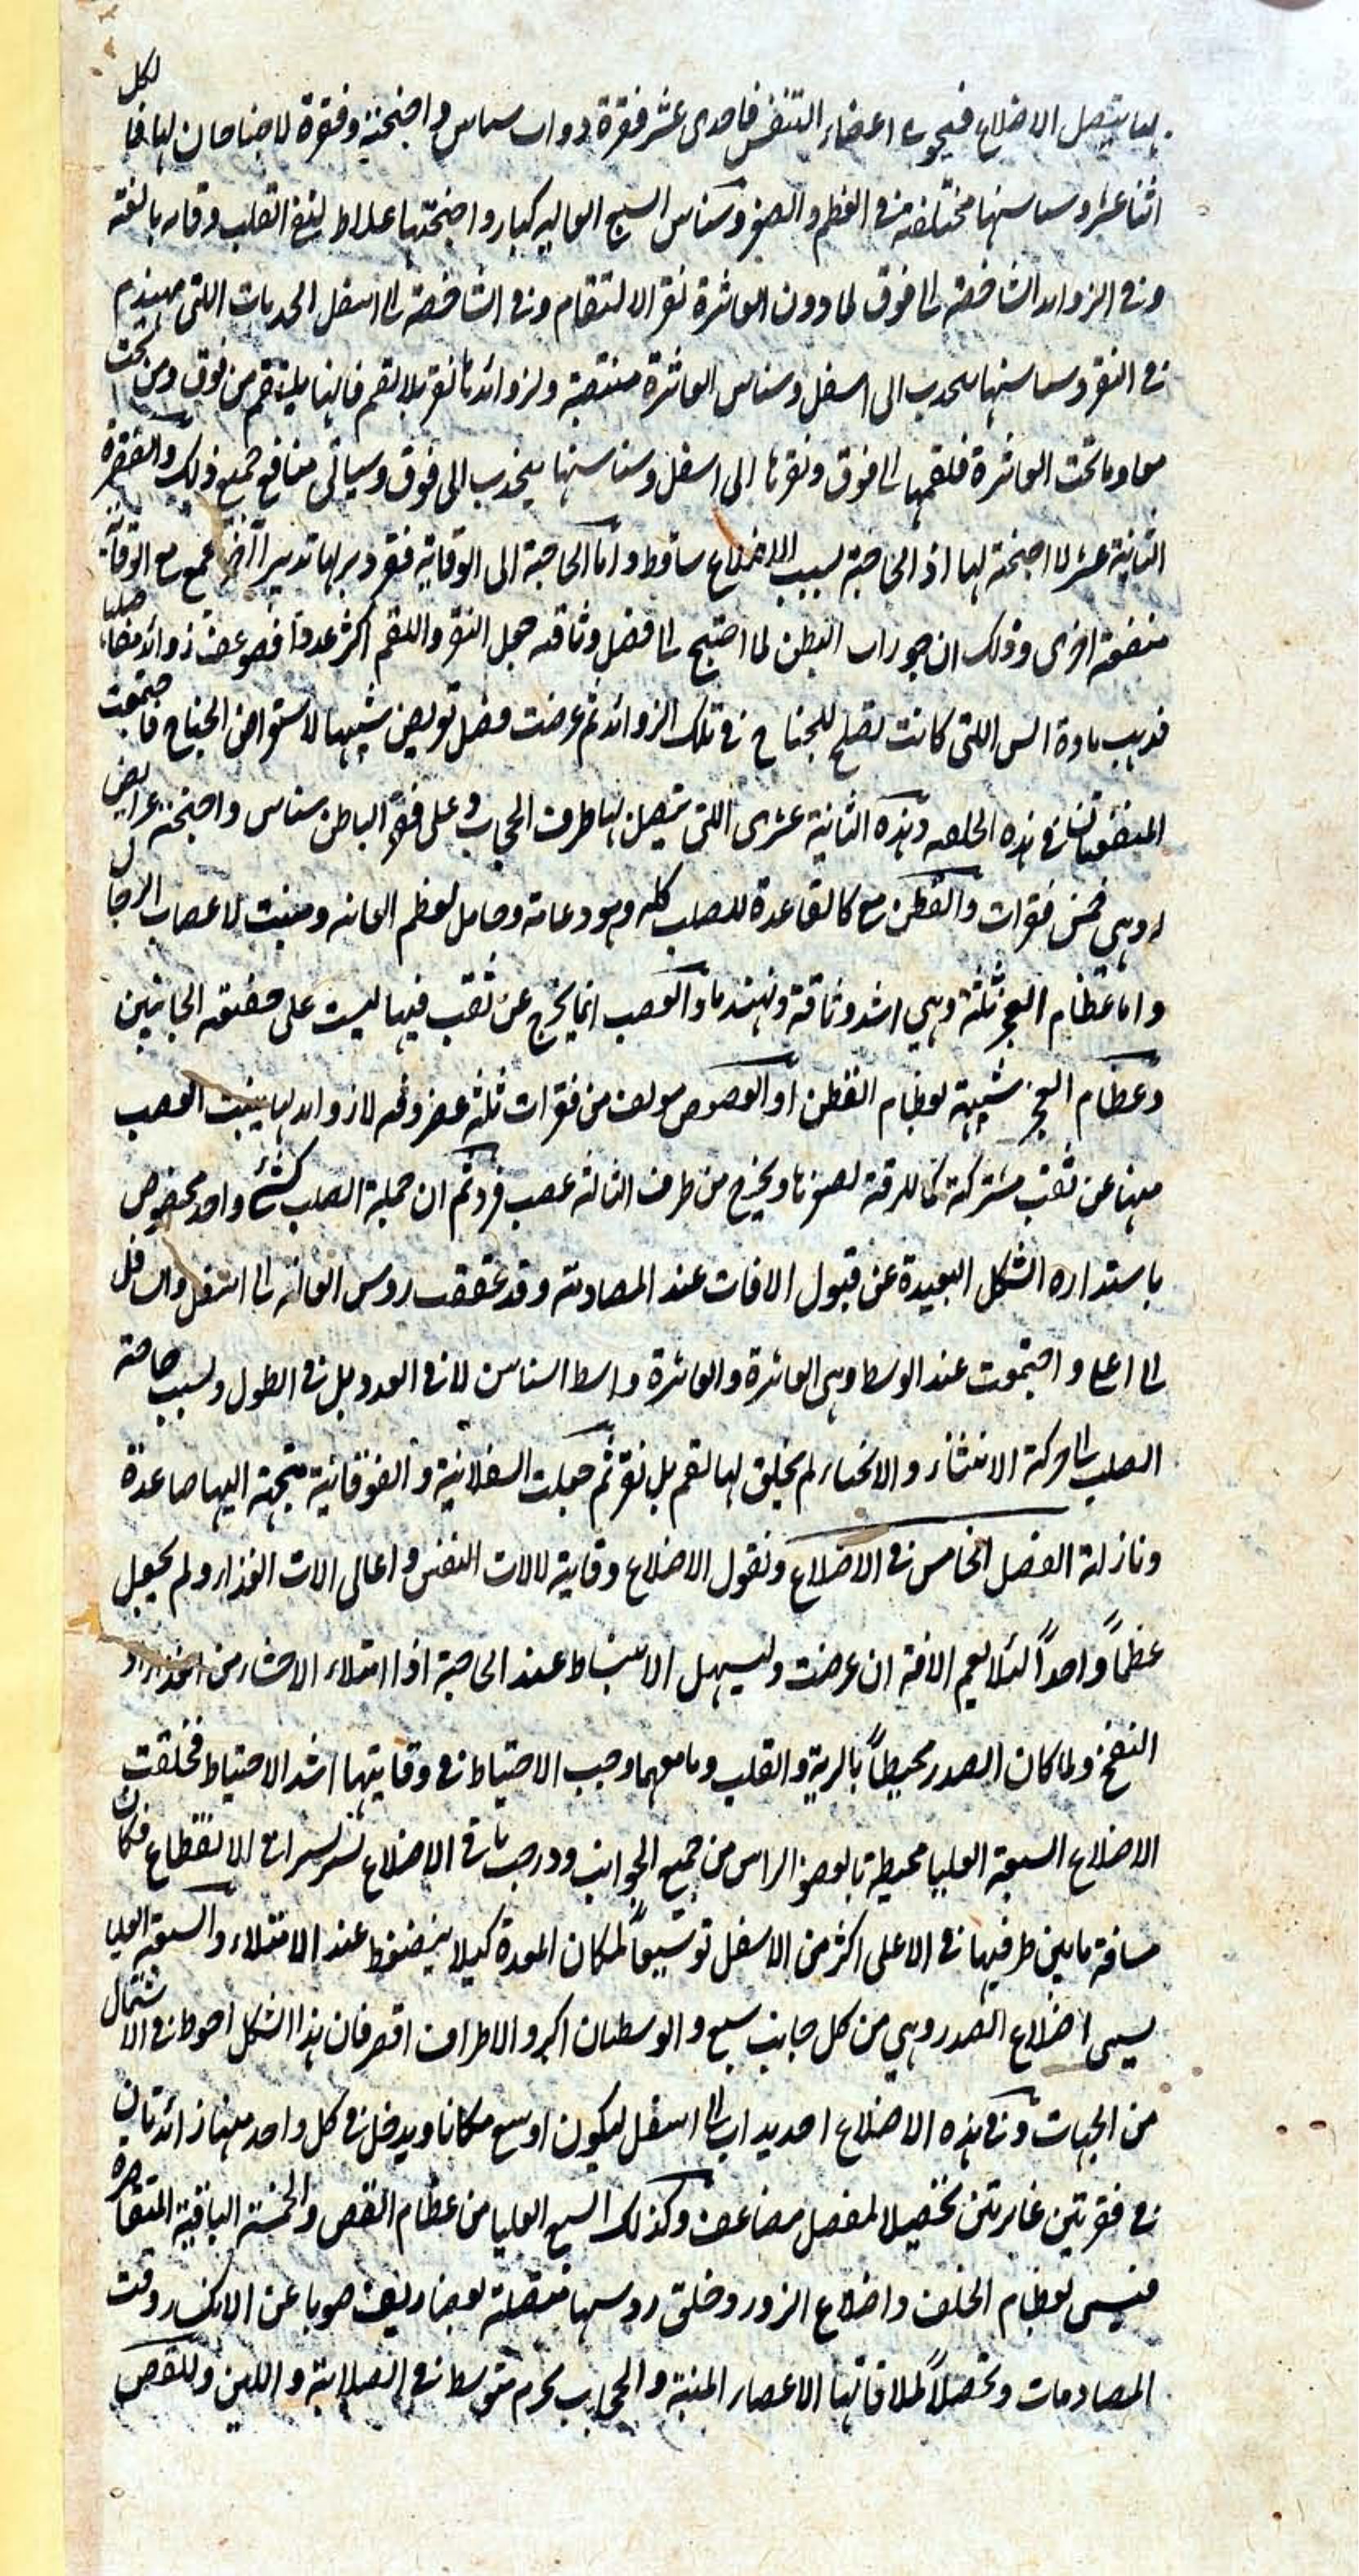 بها يتصل الاضلاع فيحوي اعضاء التنفس فاحدى عشر فقرة ذوات سناسن واجنحة وفقرة لا جناحان لها فالكل
اثنا عشر وسناسنها مختلفة في العظم والصغر وسناسن السبع العاليه كبار واجنحتها غلاظ لينفع القلب وقايه بالغة
وفي الزوايد الشاخصة الى فوق لما دون العاشرة نقر الالتقام وفي الشاخصة الى اسفل الحدبات اللتي تهندم
في النقر وسناسنها يتحدب الى اسفل وسناسن العاشرة منتصبة ولزوائدها نقر بلا لقم فانها يلتقم من فوق ومن تحت
معا وما تحت العاشرة فلقمها الى فوق ونقرها الى اسفل وسناسنها يتحدب الى فوق وسياتي منافع جميع ذلك والفقرة
الثانية عشر لا اجنحة لها اذ الحاجة بسبب الاضلاع ساقط واما الحاجة الى الوقاية فقد دبر لها تدبير آخر يجمع مع الوقاية
منفعة اخرى وذلك ان خرزات البطن لما احتيج الى فضل وثاقه جعل النقر واللقم اكثر عددا فضوعف زوائد مفاصلها
فذهب مادة اللتي كانت تصلح للجناح في تلك الزوائد ثم عرضت فضل تعريض شبيها لاستعراض الجناح فاجتمعت
المنفعتان في هذه الخلقه وهذه الثانية عشرى اللتي يتصل بها طرف الحجاب وعلى فقر الباطن سناسن واجنحة عرايض
وهي خمس فقرات والقطن مع كالقاعدة للصلب كله وهو دعامة وحامل لعظم العانه ومنبت لاعصاب الارجل
واما عظام العجز ثلثة وهي اشد وثاقة وتهندما والعصب انما يخرج عن ثقب فيها ليست على حقيقه الجانبين
وعظام العجز شبيهة بعظام القطن او العصعص مولف من فقرات ثلثه غضروفيه لا زوايد لها ينبت العصب
منها عن ثقب مشتركة كما للرقبة لصغرها ويخرج من طرف الثالثه عصب فرد ثم ان جملة الصلب كشئ واحد مخصوص
باستداره الشكل البعيدة عن قبول الافات عند المصادمة وقد تعقفت روس العاليه الى اسفل والسافل
الى اعلى واجتمعت عند الوسط وهي العاشرة والعاشرة واسط السناسن لا في العدد بل في الطول ولسبب حاجة
الصلب الى حركة الانثناء والانحناء لم يخلق لها لقم بل نقر ثم جعلت السفلانية والفوقانية متجهة اليها صاعدة
ونازلة الفصل الخامس في الاضلاع ونقول الاضلاع وقاية لالات النفس واعالى الات الغذاء ولم يجعل
عظمًا واحدًا لئلا يعم الافة ان عرضت وليسهل الانبساط عند الحاجة اذا امتلاء الاحشاء من الغذاء او
النفخ ولما كان الصدر محيطًا بالرية والقلب وما معهما وجب الاحتياط في وقايتها اشد الاحتياط فخلقت
الاضلاع السبعة العليا محيطة بالعضو الراس من جميع الجوانب ودرجت في الاضلاع الانقطاع فكان
مسافة ما بين طرفيها في الاعلى اكثر من الاسفل توسيعًا لمكان المعدة كيلا ينضغط عند الامتلاء والسبعة العليا
يسمى اضلاع الصدر وهي من كل جانب سبع والوسطتان اكبر والاطراف اقصر فان هذا الشكل احوط في الاشتمال
من الجهات وفي هذه الاضلاع احديداب الى اسفل ليكون اوسع مكانا ويدخل في كل واحد منها زائدتان
في فقرتين غايرتين تحصيلا لمفصل مضاعف وكذلك السبع العليا من عظام القص والخمسة الباقية المتقاصرة
فيسمى بعظام الخلف واضلاع الزور وخلق روسها متصلة بغضاريف صونا عن الانكسار وقت
المصادمات وتحصيلاً لملاقاتها الاعضاء اللينة والحجاب بجرم متوسط في الصلابة واللين وللقص